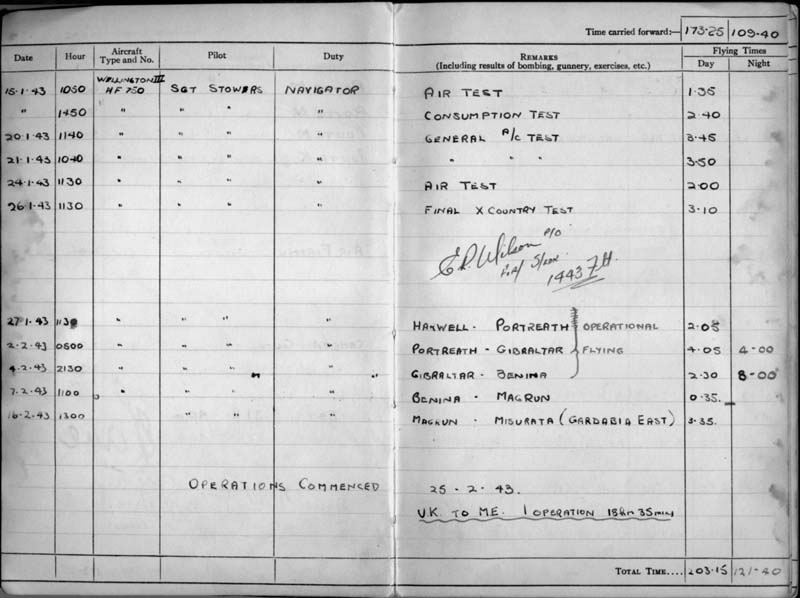 Time carried forward:— 173·25 109·40
Date Hour Aircraft Type and No. Pilot Duty REMARKS (Including results of bombing, gunnery, exercises, etc.) Flying Times Day Night
15·1·43 1050 WELLINGTON III HF 750 SGT STOWERS NAVIGATOR AIR TEST 1·35
" 1450 " " " " CONSUMPTION TEST 2·40
20·1·43 1140 " " " " GENERAL A/C TEST 3·45
21·1·43 1040 " " " " " " 3·50
24·1·43 1130 " " " " AIR TEST 2·00
26·1·43 1130 " " " " FINAL X COUNTRY TEST 3·10
Wilson P/O
1443 Flt.
27·1·43 1130 " " " " HARWELL · PORTREATH OPERATIONAL 2·05
2·2·43 0500 " " " " PORTREATH · GIBRALTAR FLYING 4·05 4·00
4·2·43 2130 " " " " GIBRALTAR · BENINA 2·30 8·00
7·2·43 1100 " " " " BENINA · MAGRUN 0·35
16·2·43 1300 " " " " MAGRUN · MISURATA (GARDABIA EAST) 3·35
OPERATIONS COMMENCED 25·2·43.
U.K. TO M.E. 1 OPERATION 18hr 35min
TOTAL TIME.... 203·15 121·40